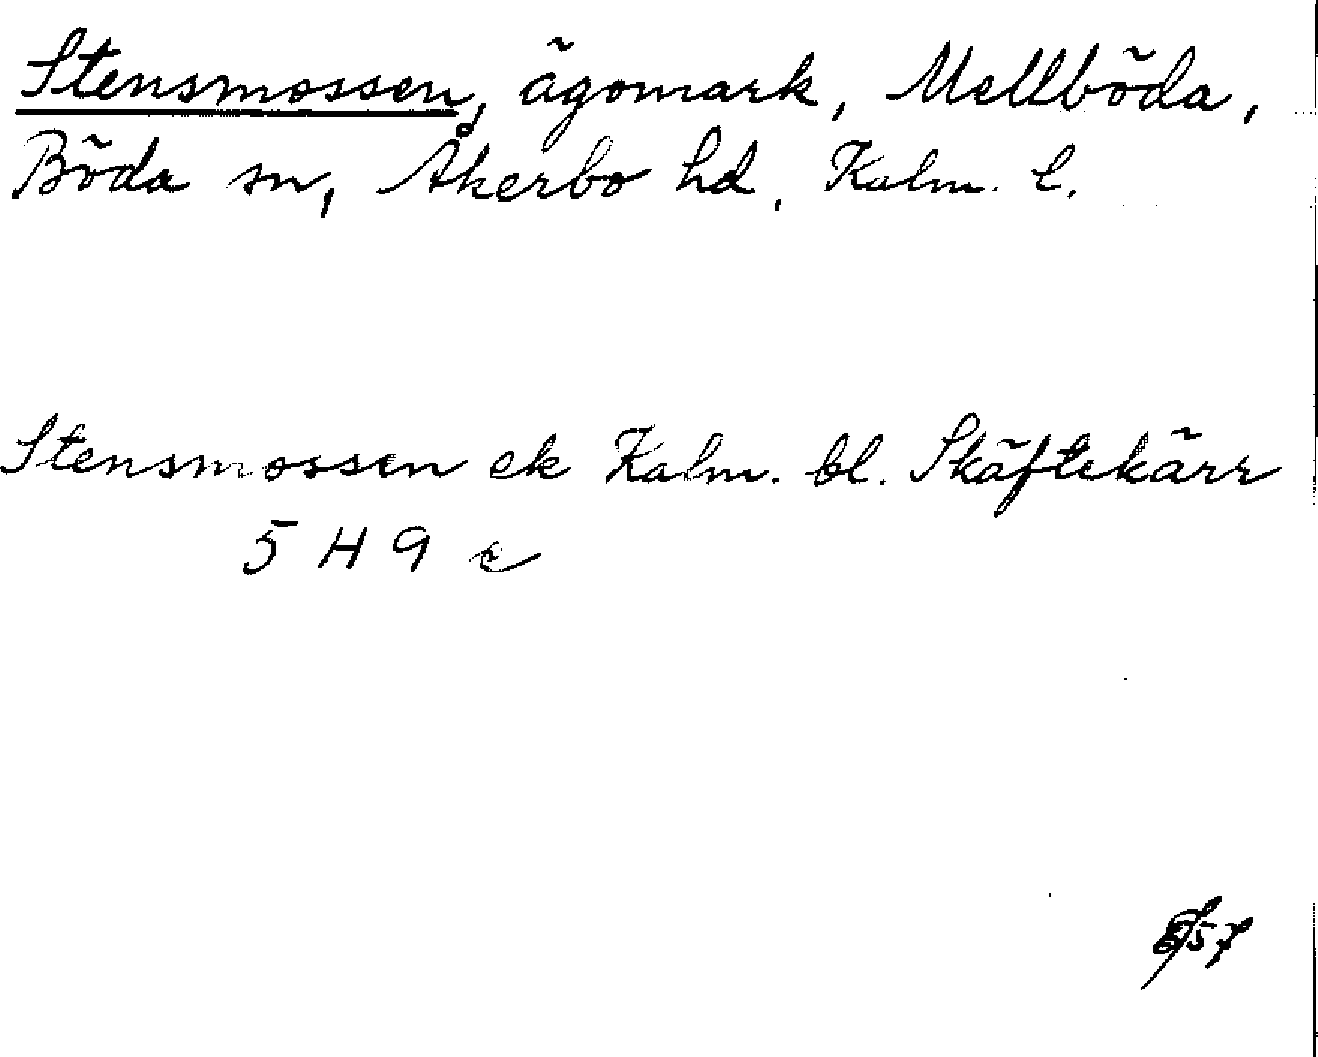 Stensmossen, ägomark, Mellböda,
Böda sn, Åkerbo hd, Kalm. l.
Stensmossen ek Kalm. bl. Skäftekärr
5 H 9 e